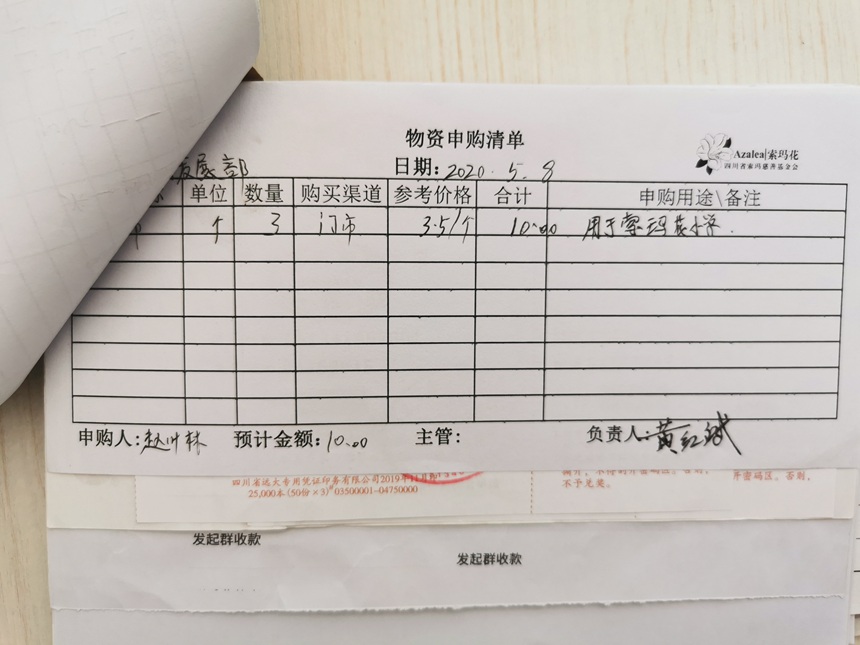 物资申购清单
Azalea|索玛花
四川省索玛慈善基金会
发展部 日期：2020.5.8
单位 数量 购买渠道 参考价格 合计 申购用途\备注
个 3 门市 3.5/个 10.00 用于索玛花小学.
申购人： 预计金额：10.00 主管： 负责人：黄红斌
四川省远大专用凭证印务有限公司2019年11月印
25,000本(50份×3) 03500001-04750000
不予兑奖。
开密码区。否则，
发起群收款
发起群收款